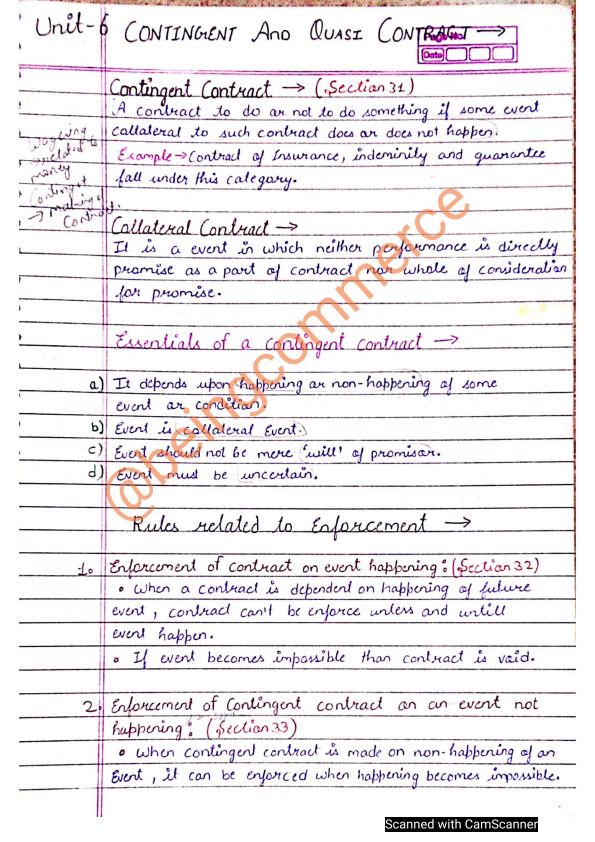 Unit-6 CONTINGENT AND QUASI CONTRACT →
Page No.
Date
Contingent Contract → (Section 31)
A contract to do or not to do something if some event
collateral to such contract does or does not happen.
Example → Contract of Insurance, indeminity and guarantee
fall under this category.
Wagering
→ related to
money
Contingent
→ making of
Contract.
Collateral Contract →
It is a event in which neither performance is directly
promise as a part of contract nor whole of consideration
for promise.
Essentials of a contingent contract →
a) It depends upon happening or non-happening of some
event or condition.
b) Event is collateral Event.
c) Event should not be mere 'will' of promisor.
d) Event must be uncertain.
@beingcommerce
Rules related to Enforcement →
1. Enforcement of contract on event happening: (Section 32)
• When a contract is dependent on happening of future
event, contract can't be enforce unless and untill
event happen.
• If event becomes impossible than contract is void.
2. Enforcement of Contingent contract on an event not
happening: (Section 33)
• When contingent contract is made on non-happening of an
Event, it can be enforced when happening becomes impossible.
Scanned with CamScanner